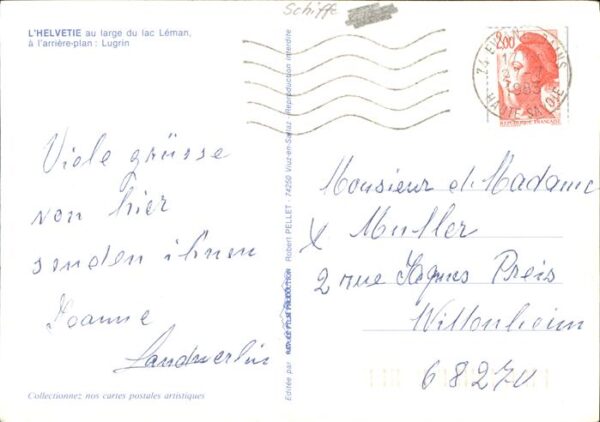 L'HELVETIE au large du lac Léman,
à l'arrière-plan : Lugrin
Schiffe
Viele grüsse
von hier
senden ihnen
Joanne
Landwerlin
Collectionnez nos cartes postales artistiques
Editée par Robert PELLET - 74250 Viuz-en-Sallaz - Reproduction interdite
2,00
74 EVIAN
1985
HAUTE SAVOIE
REPUBLIQUE FRANÇAISE
Monsieur et Madame
X Muller
2 rue Jaques Preis
Wittenheim
68270